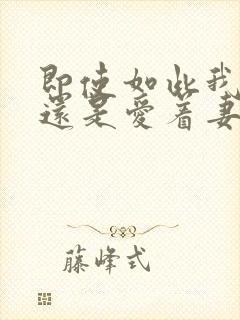 即使如此我
還是愛著妻
藤峰式